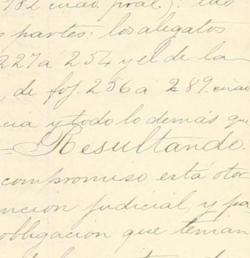 182 cuad pral):
s partes: los alegatos
227 a 254 y el de la
de foj 256 a 289. cuad
cia y todo lo demás qu
Resultando.
compromiso está oto
ncion judicial, y pa
obligacion que tenian